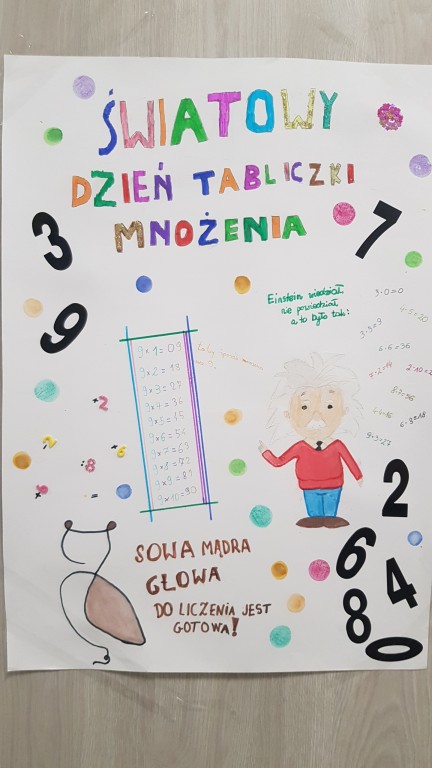 ŚWIATOWY
DZIEŃ TABLICZKI
MNOŻENIA
3
7
9
Einstein wiedział
nie powiedział
a to było tak:
3·0=0
3·3=9
6·6=36
2·10=2
4·4=16
6·3=18
9·3=27
9×1=09
9×2=18
9×3=27
9×4=36
9×5=45
9×6=54
9×7=63
9×8=72
9×9=81
9×10=90
×2
:8
×6
SOWA MĄDRA
GŁOWA
DO LICZENIA JEST
GOTOWA!
2
6
4
8
0